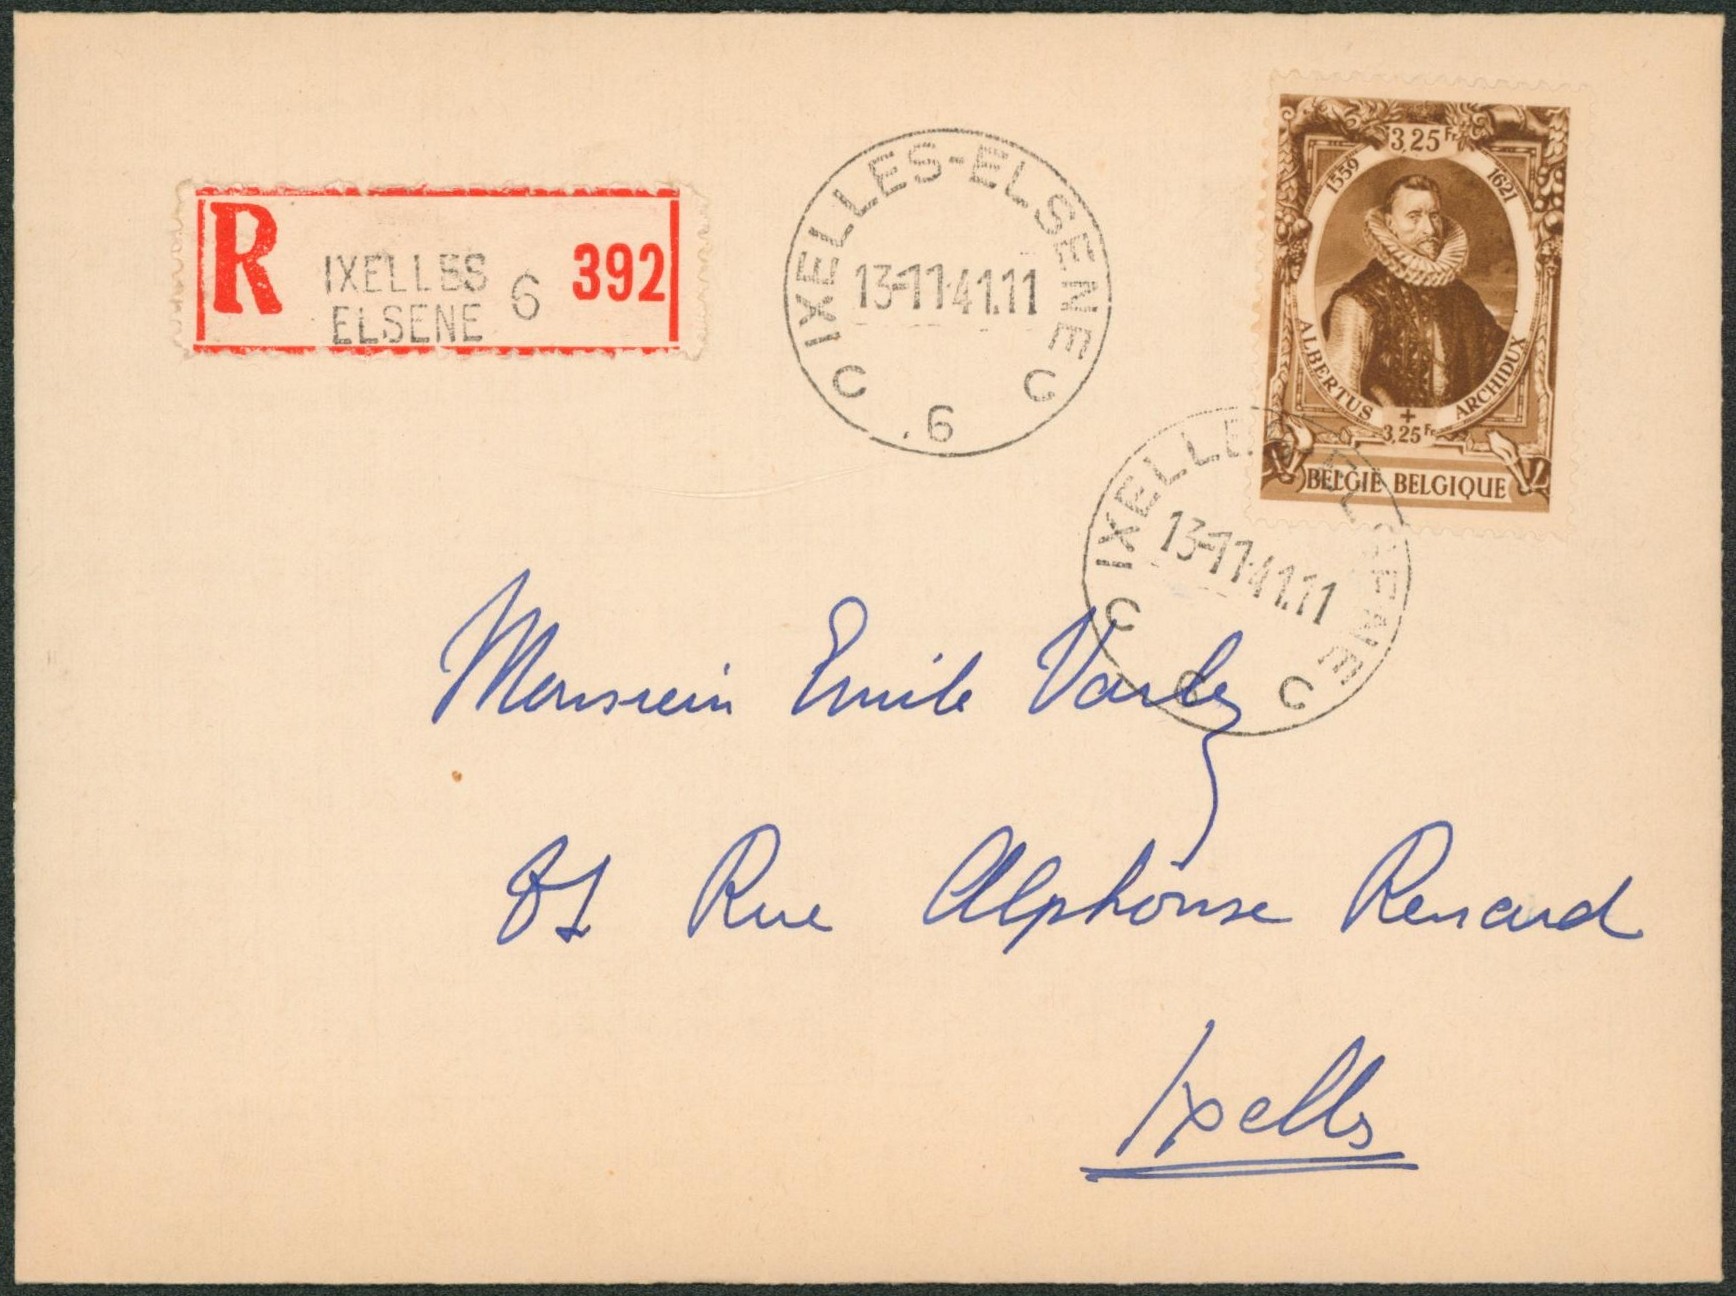 R IXELLES ELSENE 6 392
IXELLES-ELSENE
13-11-41.11
C 6 C
3,25 Fr
1559 1621
ALBERTUS ARCHIDUX
+
3,25 Fr
BELGIË BELGIQUE
IXELLES-ELSENE
13-11-41.11
C 6 C
Monsieur Emile
Rue Alphonse Renard
Ixelles